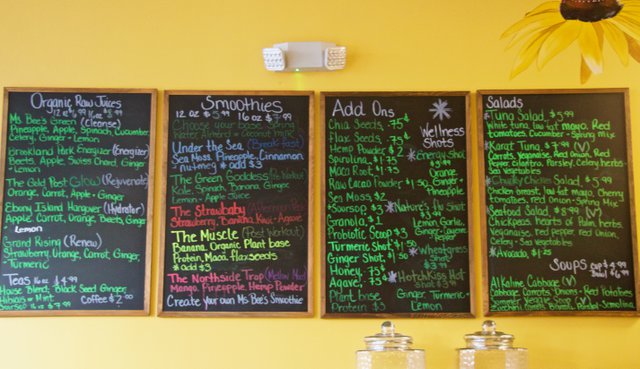 Organic Raw Juices
12 oz $ .99 16 oz $ .99
Ms Bee's Green (Cleanse)
Pineapple, Apple, Spinach, Cucumber
Celery, Ginger + Lemon
Brookland Park Energizer (Energizer)
Beets, Apple, Swiss Chard, Ginger
+ Lemon
The Gold Post Glow (Rejuvenate)
Orange, Carrot, Apple + Ginger
Ebony Island Hangover (Hydrator)
Apple, Carrot, Orange, Beets, Ginger
Lemon
Grand Rising (Renew)
Strawberry, Orange, Carrot, Ginger
+ Turmeric
Teas 16 oz $4.99
House Blend: Black Seed Ginger
Hibiscus + Mint Coffee $2.00
Soursop $ .99
Smoothies
12 oz $5.99 16 oz $7.99
Choose your base Spring
Water, Almond or Coconut Milk
Under the Sea (Breakfast)
Sea Moss, Pineapple, Cinnamon
+ nutmeg * add $3
The Green Goddess (Pre Workout)
Kale, Spinach, Banana, Ginger
Lemon + Agave
The Strawbaby
Strawberry, Banana, Kiwi + Agave
The Muscle (Post Workout)
Banana, Organic Plant base
Protein, Maca, flaxseeds
* add $3
The Northside Trap (Mellow Mood)
Mango, Pineapple, Hemp Powder
Create your own Ms Bee's Smoothie
Add Ons
Chia Seeds, .75¢
Flax Seeds, .75¢
Hemp Powder $2
Spirulina, $1.75
Maca Root, $
Raw Cacao Powder $1.50
Sea Moss, $3
Soursop $3
Granola $1
Probiotic Scoop $3
Turmeric Shot $1.50
Ginger Shot, $1.50
Honey, .75¢
Agave, .75¢
Plant base
Protein $3
Wellness
Shots
* Energy Shot
Orange
Ginger
Pineapple
* Nature's Flu Shot
Lemon, Garlic
Ginger, Cayenne
Pepper
* Wheatgrass
Shot $3.99
* Hotchkiss Hot
Shot $3.99
Ginger, Turmeric
Lemon
Salads
* Tuna Salad $5.99
White tuna, low fat mayo, Red
tomatoes, Cucumber + Spring Mix
* Karat Tuna $7.99 (V)
Carrots, Veganaise, Red Onion, Red
Pepper, cilantro, Parsley, Celery, herbs
Sea Vegetables
* Chunky Chicken Salad $5.99
Chicken breast, low fat mayo, Cherry
tomatoes, red onion + Spring Mix
* Seafood Salad $8.99 (V)
Chickpeas, Hearts of Palm, herbs
Veganaise, red pepper, red onion
Celery + Sea vegetables
* Avocado, $1.25
Soups cup $4.99
Alkaline Cabbage (V)
Cabbage, Carrots, Onions + Red Potatoes
Summer Veggie Soup (V)
Zucchini, Carrots